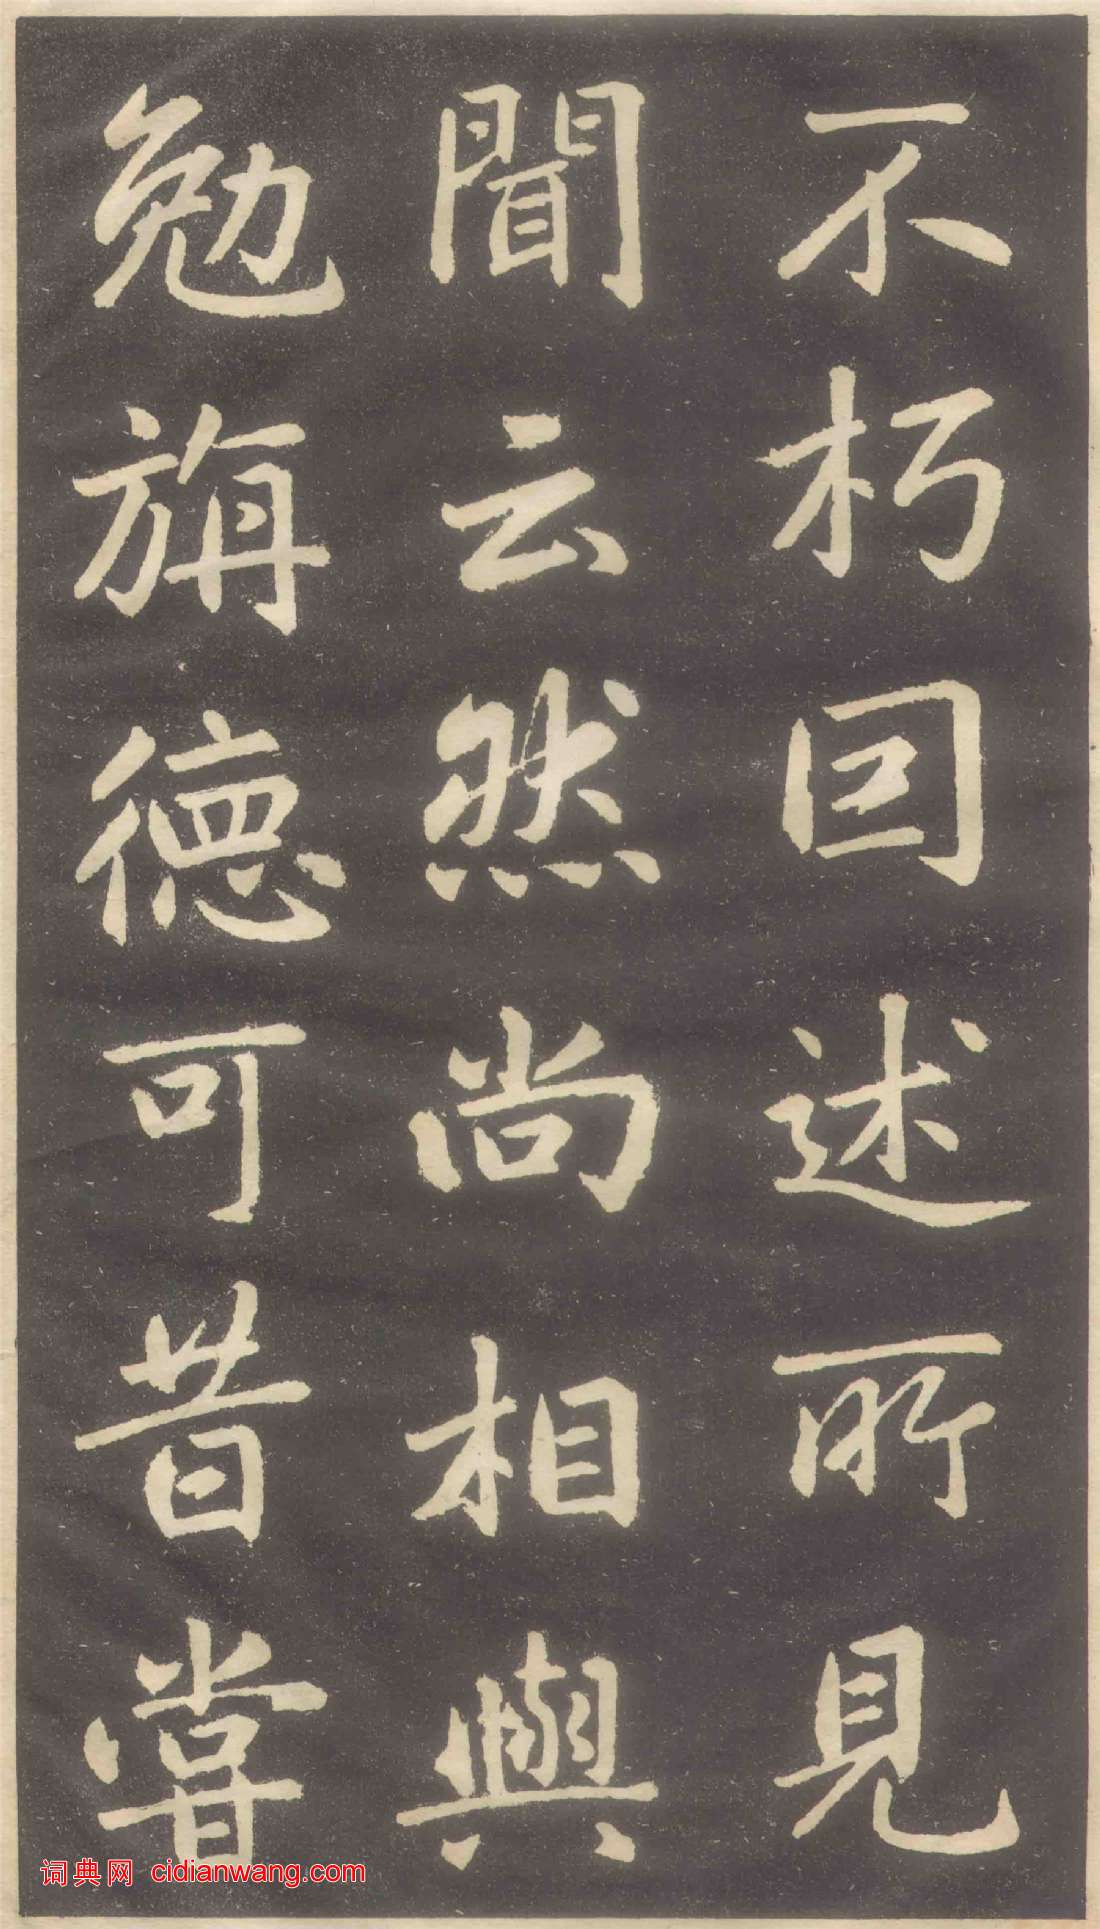 不朽囙述所見
聞云然尚相與
勉旃德可昔甞
词典网 cidianwang.com